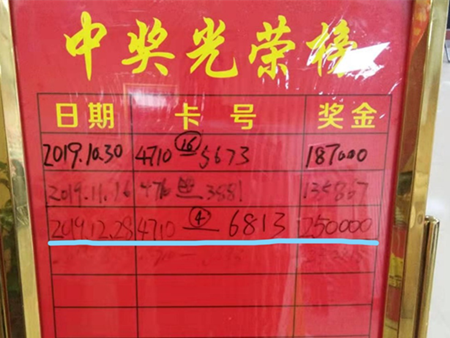 中奖光荣榜
日期 卡号 奖金
2019.10.30 4710 16 5673 187000
2019.11.16 476 3881 135867
2019.12.28 4710 4 6813 250000